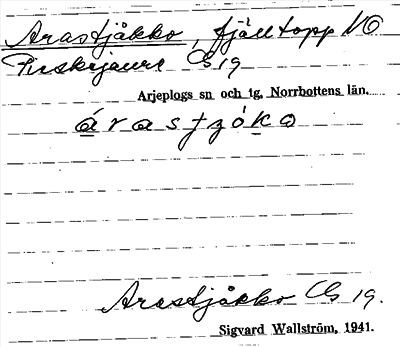 Arastjåkko, fjälltopp NO
Pieskejaure Gb 19
Arjeplogs sn och tg, Norrbottens län.
árastjóko
Arastjåkko Gb 19.
Sigvard Wallström, 1941.